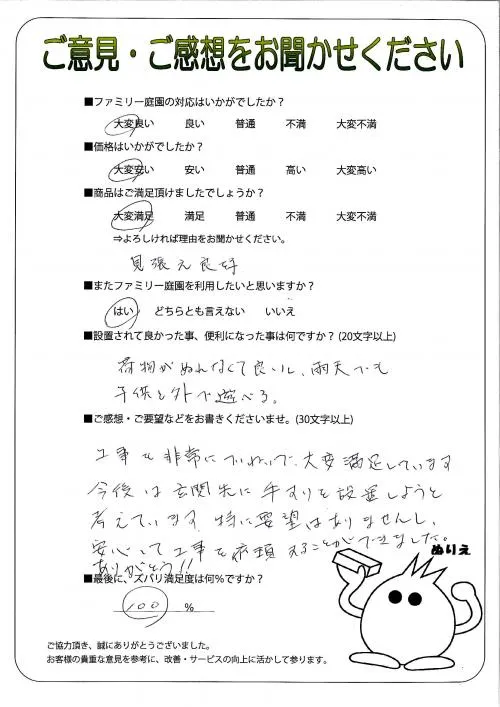 ご意見・ご感想をお聞かせください
■ファミリー庭園の対応はいかがでしたか？
大変良い 良い 普通 不満 大変不満
■価格はいかがでしたか？
大変安い 安い 普通 高い 大変高い
■商品はご満足頂けましたでしょうか？
大変満足 満足 普通 不満 大変不満
⇒よろしければ理由をお聞かせください。
見張え良好
■またファミリー庭園を利用したいと思いますか？
はい どちらとも言えない いいえ
■設置されて良かった事、便利になった事は何ですか？(20文字以上)
荷物がぬれなくて良いし、雨天でも
子供と外で遊べる。
■ご感想・ご要望などをお書きくださいませ。(30文字以上)
工事も非常にていねいで、大変満足しています
今後は玄関先に手すりを設置しようと
考えています 特に要望はありませんし、
安心して工事を依頼することができました。
ありがとう!!
ぬりえ
■最後に、ズバリ満足度は何％ですか？
100 %
ご協力頂き、誠にありがとうございました。
お客様の貴重な意見を参考に、改善・サービスの向上に活かして参ります。